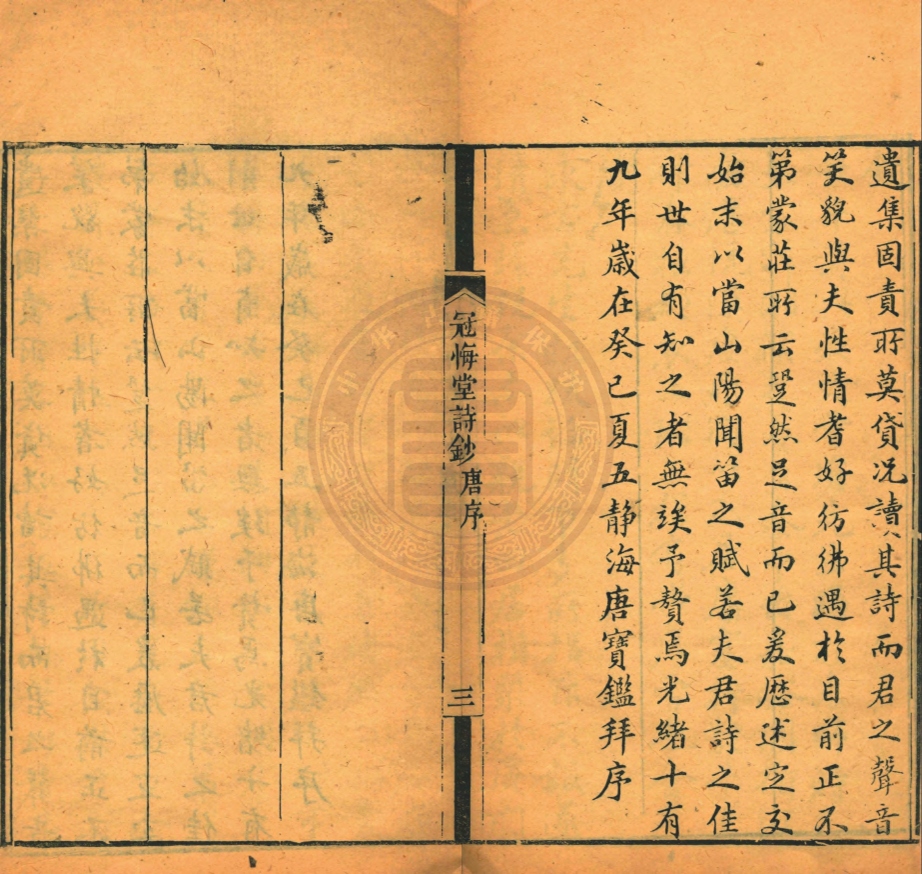 遺集固責所莫貸况讀其詩而君之聲音
笑貌與夫性情耆好彷彿遇於目前正不
第蒙莊所云跫然足音而已爰歷述定交
始末以當山陽聞笛之賦若夫君詩之佳
則世自有知之者無竢予贅焉光緒十有
九年嵗在癸巳夏五静海唐寶鑑拜序
冠悔堂詩鈔 唐序 三